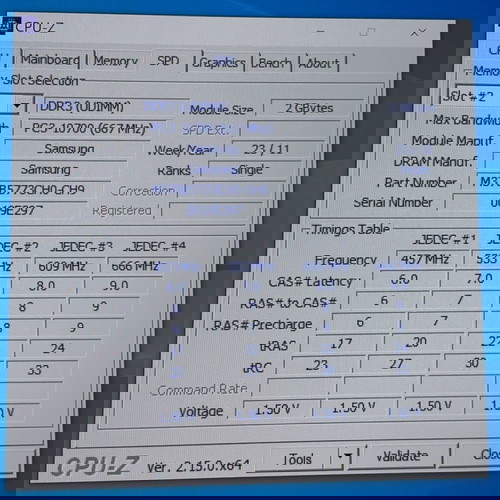 CPU-Z
Mainboard Memory SPD Graphics Bench About
Slot Selection
Slot #2 DDR3 (UDIMM) Module Size 2 GBytes
Max Bandwidth PC3-10700 (667 MHz) SPD Ext.
Module Manuf. Samsung Week/Year 23 / 11
DRAM Manuf. Samsung Ranks Single
Part Number Correction
Serial Number Registered
Timings Table
JEDEC #1 JEDEC #2 JEDEC #3 JEDEC #4
Frequency 457 MHz 533 MHz 609 MHz 666 MHz
CAS# Latency 6.0 7.0 8.0 9.0
RAS# to CAS# 6 7 8 9
RAS# Precharge 6 7 8 9
tRAS 17 20 22 24
tRC 23 27 30 33
Command Rate
Voltage 1.50 V 1.50 V 1.50 V
CPU-Z Ver. 2.15.0.x64 Tools Validate